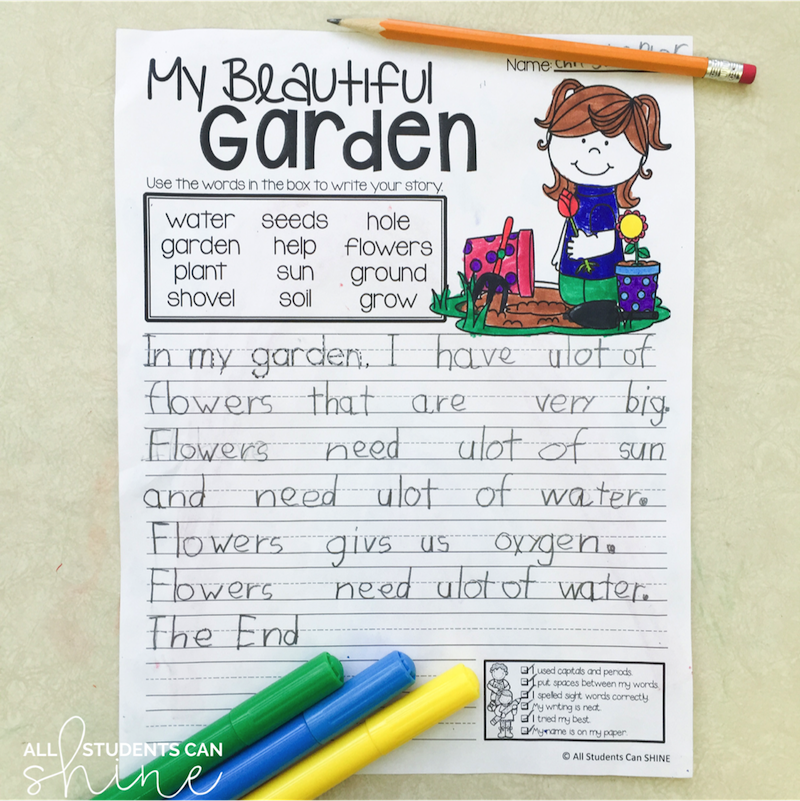 Name:
My Beautiful
Garden
Use the words in the box to write your story.
water seeds hole
garden help flowers
plant sun ground
shovel soil grow
In my garden, I have ulot of
flowers that are very big.
Flowers need ulot of sun
and need ulot of water.
Flowers givs us oxygen.
Flowers need ulot of water.
The End
I used capitals and periods.
I put spaces between my words.
I spelled sight words correctly.
My writing is neat.
I tried my best.
My name is on my paper.
© All Students Can SHINE
ALL STUDENTS CAN
shine